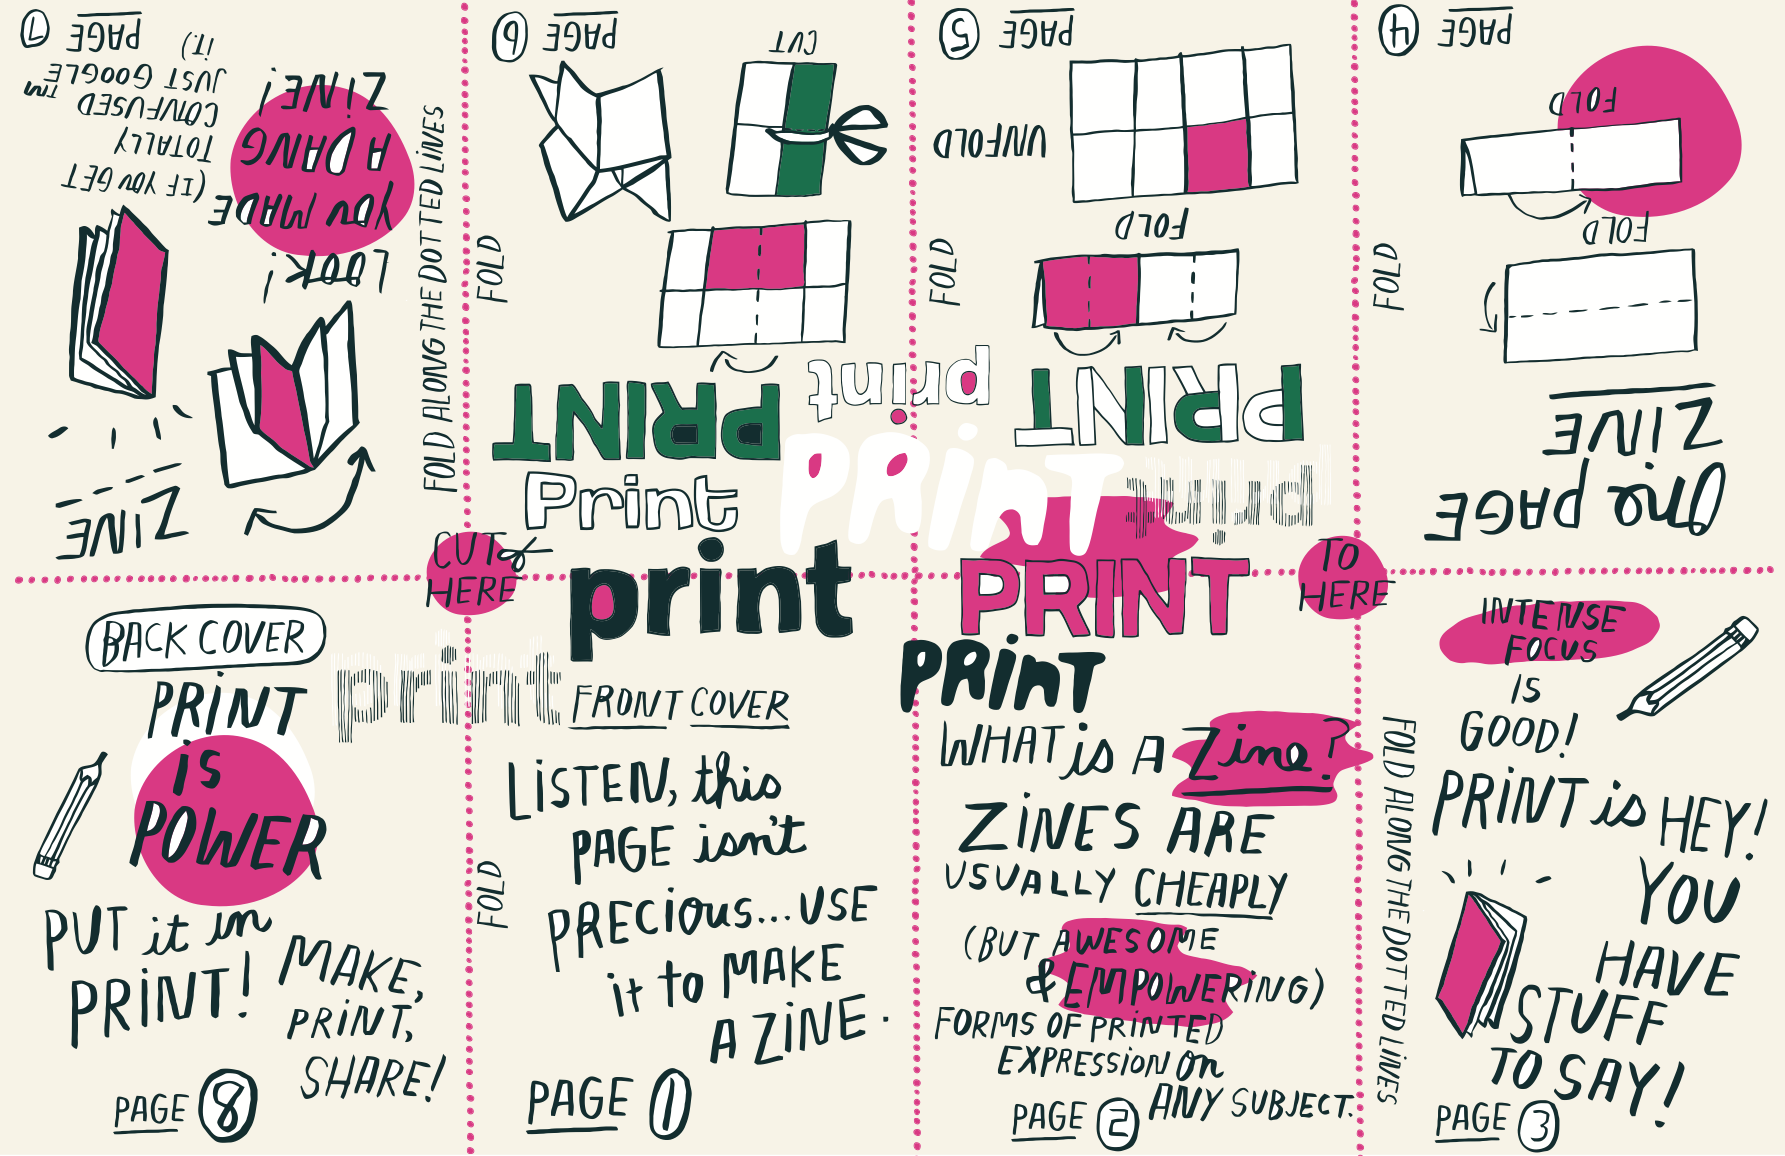 BACK COVER
PRINT
is
POWER
PUT it in
PRINT!
MAKE,
PRINT,
SHARE!
PAGE 8
FRONT COVER
LISTEN, this
PAGE isn't
PRECIOUS... USE
it to MAKE
A ZINE.
PAGE 1
FOLD
WHAT is A Zine?
ZINES ARE
USUALLY CHEAPLY
(BUT AWESOME
& EMPOWERING)
FORMS OF PRINTED
EXPRESSION On
ANY SUBJECT.
PAGE 2
INTENSE
FOCUS
IS
GOOD!
PRINT is HEY!
YOU
HAVE
STUFF
TO SAY!
PAGE 3
FOLD ALONG THE DOTTED LINES
One PAGE
ZINE
FOLD
FOLD
PAGE 4
FOLD
FOLD
UNFOLD
PAGE 5
FOLD
CUT
PAGE 6
FOLD
ZINE
LOOK!
YOU MADE
A DANG
ZINE!
(IF YOU GET
TOTALLY
CONFUSED
JUST GOOGLE™
it.)
PAGE 7
FOLD ALONG THE DOTTED LINES
CUT
HERE
TO
HERE
PRINT
print
PRINT
Print
PRINT
print
print
PRINT
print
PRINT